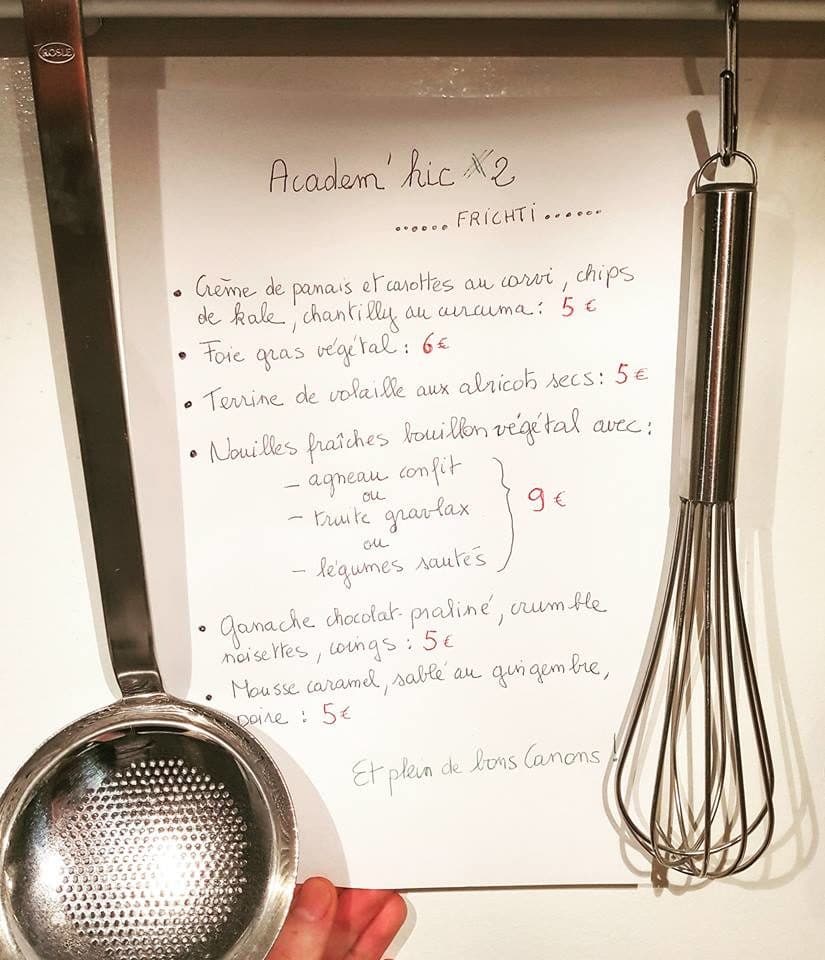 RÖSLE
Academ'hic X2
...... FRICHTI ......
• Crème de panais et carottes au carvi, chips
de kale, chantilly au curcuma : 5 €
• Foie gras végétal : 6 €
• Terrine de volaille aux abricots secs : 5 €
• Nouilles fraîches bouillon végétal avec :
– agneau confit
ou
– truite gravlax
ou
– légumes sautés
9 €
• Ganache chocolat-praliné, crumble
noisettes, coings : 5 €
• Mousse caramel, sablé au gingembre,
poire : 5 €
Et plein de bons Canons !